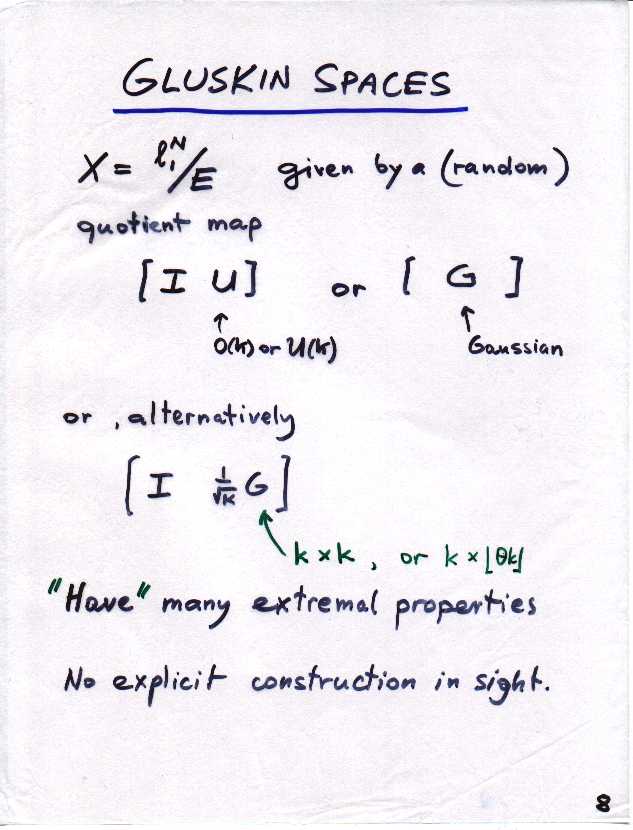 GLUSKIN SPACES
X = ℓ₁ᴺ/E given by a (random)
quotient map
[I U] or [ G ]
↑ ↑
O(k) or U(k) Gaussian
or , alternatively
[I 1/√k G]
k × k , or k × ⌊θk⌋
"Have" many extremal properties
No explicit construction in sight.
8